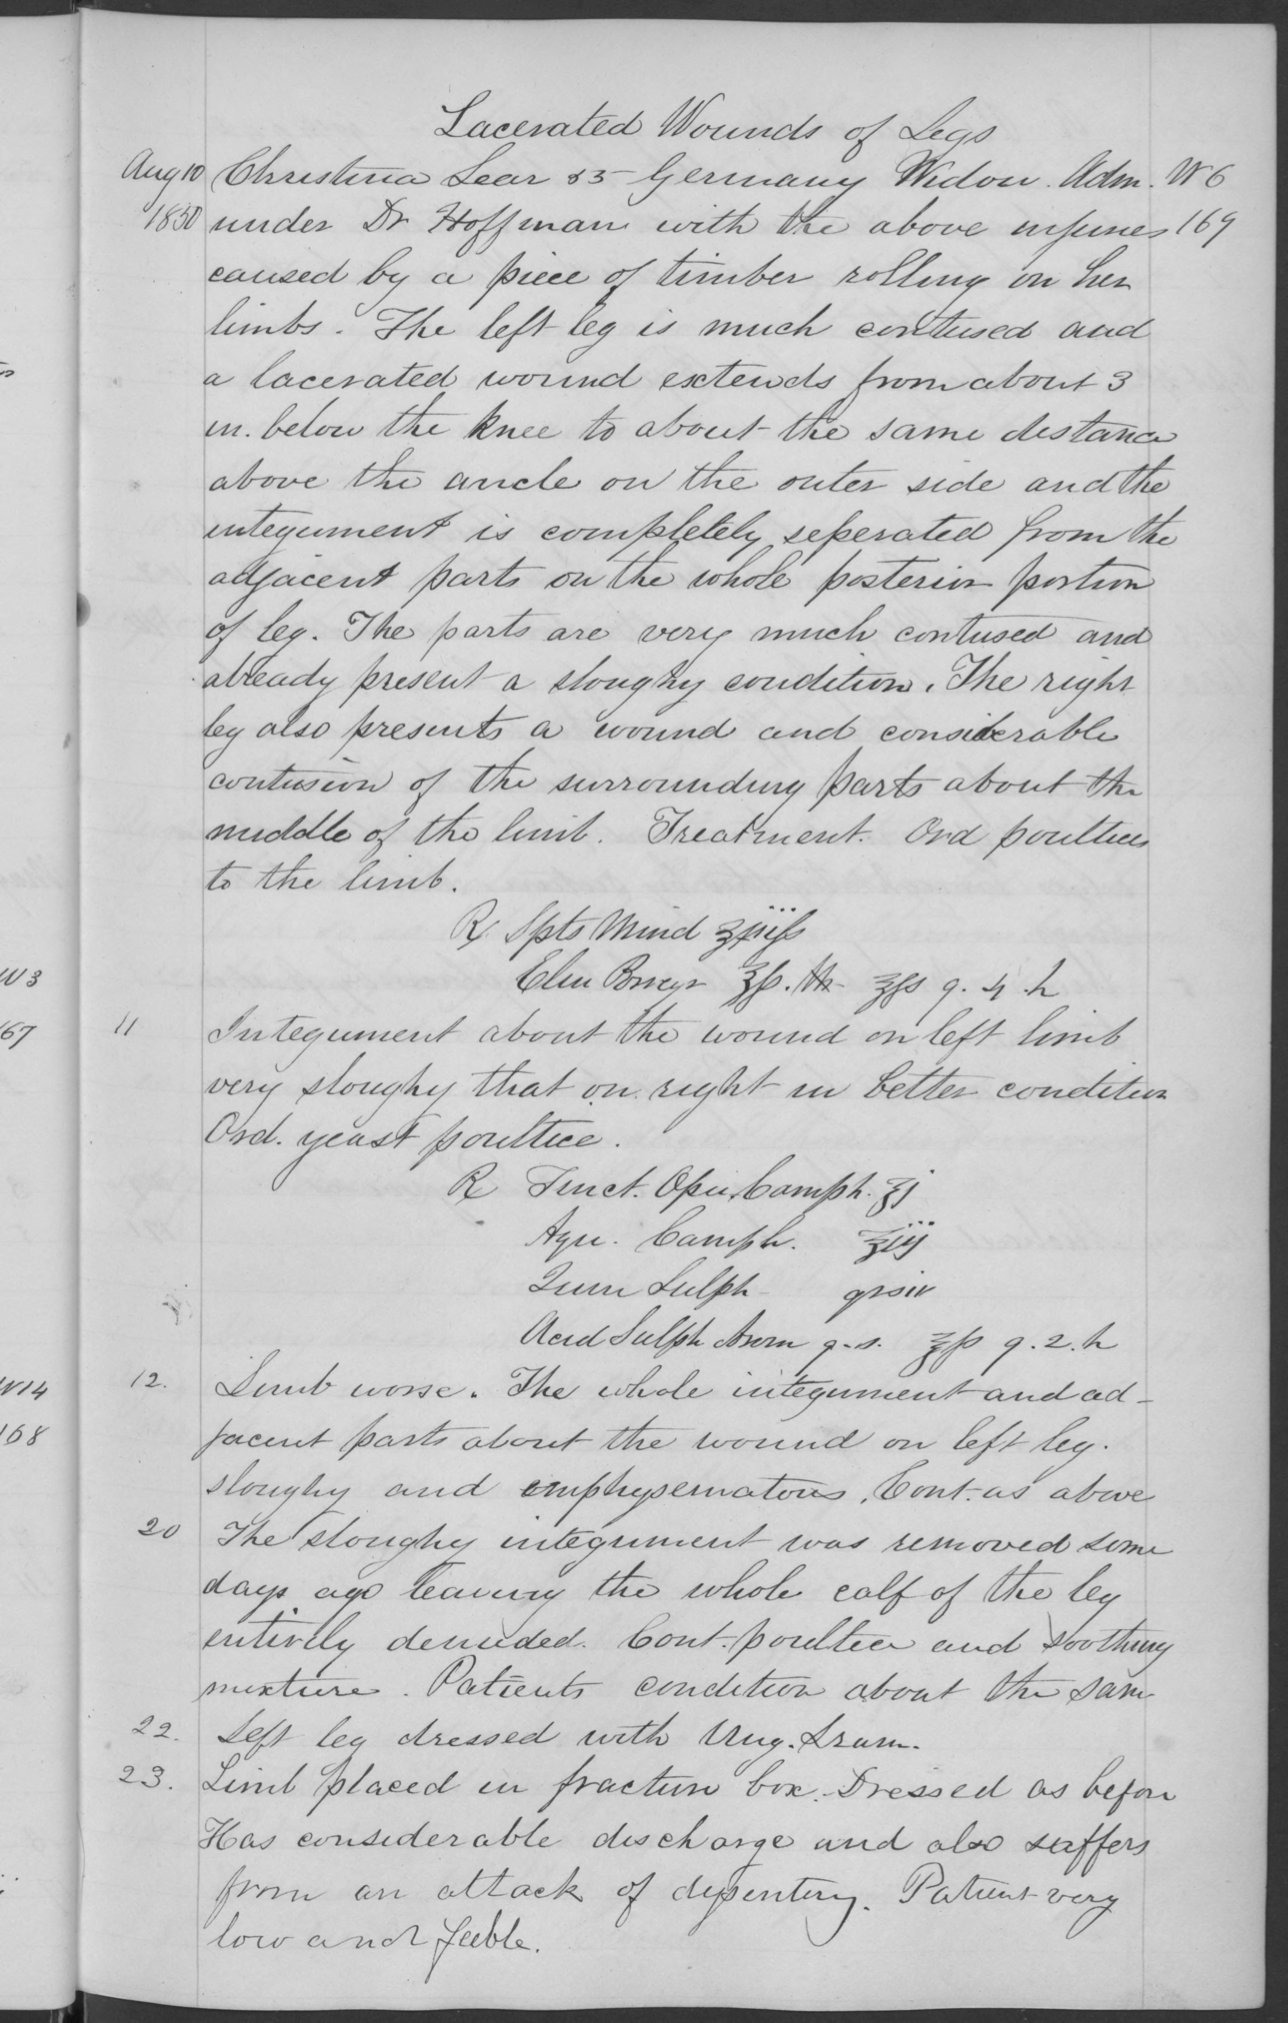 Lacerated Wounds of Legs
Aug 10 Christina Lear 85 Germany Widow. Adm. W 6
1850 under Dr Hoffman with the above injuries 169
caused by a piece of timber rolling on her
limbs. The left leg is much contused and
a lacerated wound extends from about 3
in. below the knee to about the same distance
above the ancle on the outer side and the
integument is completely seperated from the
adjacent parts on the whole posterior portion
of leg. The parts are very much contused and
already present a sloughy condition. The right
leg also presents a wound and considerable
contusion of the surrounding parts about the
middle of the limb. Treatment. Ord poultices
to the limb.
℞ Spts Mind ℥iijß
Elix ℥ß. ℥ß q. 4. h
11 Integument about the wound on left limb
very sloughy that on right in better condition
Ord. yeast poultice.
℞ Tinct. Opii Camph. ℥j
Aqu. Camph. ℥iij
Quin Sulph grs iv
Acid Sulph Arom q.s. ℥ß q. 2. h
12. Limb worse. The whole integument and ad-
jacent parts about the wound on left leg.
sloughy and emphysematous. Cont. as above
20 The sloughy integument was removed some
days ago leaving the whole calf of the leg
entirely denuded. Cont. poultice and soothing
mixture. Patients condition about the same
22. Left leg dressed with Ung.
23. Limb placed in fracture box. Dressed as before
Has considerable discharge and also suffers
from an attack of dysentery. Patient very
low and feeble.
W 3
67
W14
168